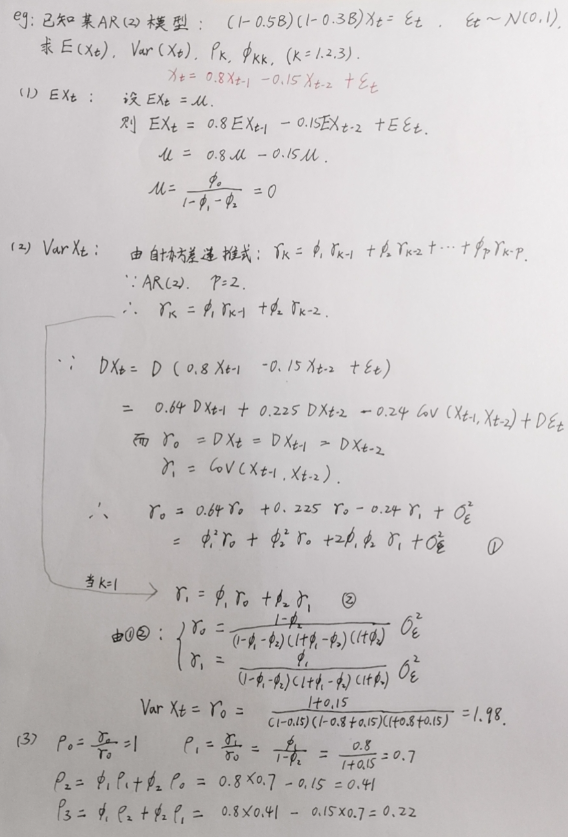 eg: 已知某AR(2)模型: (1-0.5B)(1-0.3B)Xt = εt . εt ~ N(0,1).
求E(Xt), Var(Xt), ρK, ϕKK, (K=1.2.3).
Xt = 0.8Xt-1 - 0.15Xt-2 + εt
(1) EXt: 设EXt = μ.
则 EXt = 0.8EXt-1 - 0.15EXt-2 + Eεt.
μ = 0.8μ - 0.15μ.
μ = ϕ0/(1-ϕ1-ϕ2) = 0
(2) VarXt: 由自协方差递推式: γK = ϕ1γK-1 + ϕ2γK-2 + ⋯ + ϕpγK-p.
∵ AR(2). P=2.
∴ γK = ϕ1γK-1 + ϕ2γK-2.
∵ DXt = D(0.8Xt-1 - 0.15Xt-2 + εt)
= 0.64DXt-1 + 0.225DXt-2 - 0.24Cov(Xt-1, Xt-2) + Dεt
而 γ0 = DXt = DXt-1 = DXt-2
γ1 = Cov(Xt-1, Xt-2).
∴ γ0 = 0.64γ0 + 0.225γ0 - 0.24γ1 + σε²
= ϕ1²γ0 + ϕ2²γ0 + 2ϕ1ϕ2γ1 + σε² ①
当K=1 γ1 = ϕ1γ0 + ϕ2γ1 ②
由①②: { γ0 = (1-ϕ2)/((1-ϕ1-ϕ2)(1+ϕ1-ϕ2)(1+ϕ2)) σε²
γ1 = ϕ1/((1-ϕ1-ϕ2)(1+ϕ1-ϕ2)(1+ϕ2)) σε²
VarXt = γ0 = (1+0.15)/((1-0.15)(1-0.8+0.15)(1+0.8+0.15)) = 1.98.
(3) ρ0 = γ0/γ0 = 1 ρ1 = γ1/γ0 = ϕ1/(1-ϕ2) = 0.8/(1+0.15) = 0.7
ρ2 = ϕ1ρ1 + ϕ2ρ0 = 0.8×0.7 - 0.15 = 0.41
ρ3 = ϕ1ρ2 + ϕ2ρ1 = 0.8×0.41 - 0.15×0.7 = 0.22